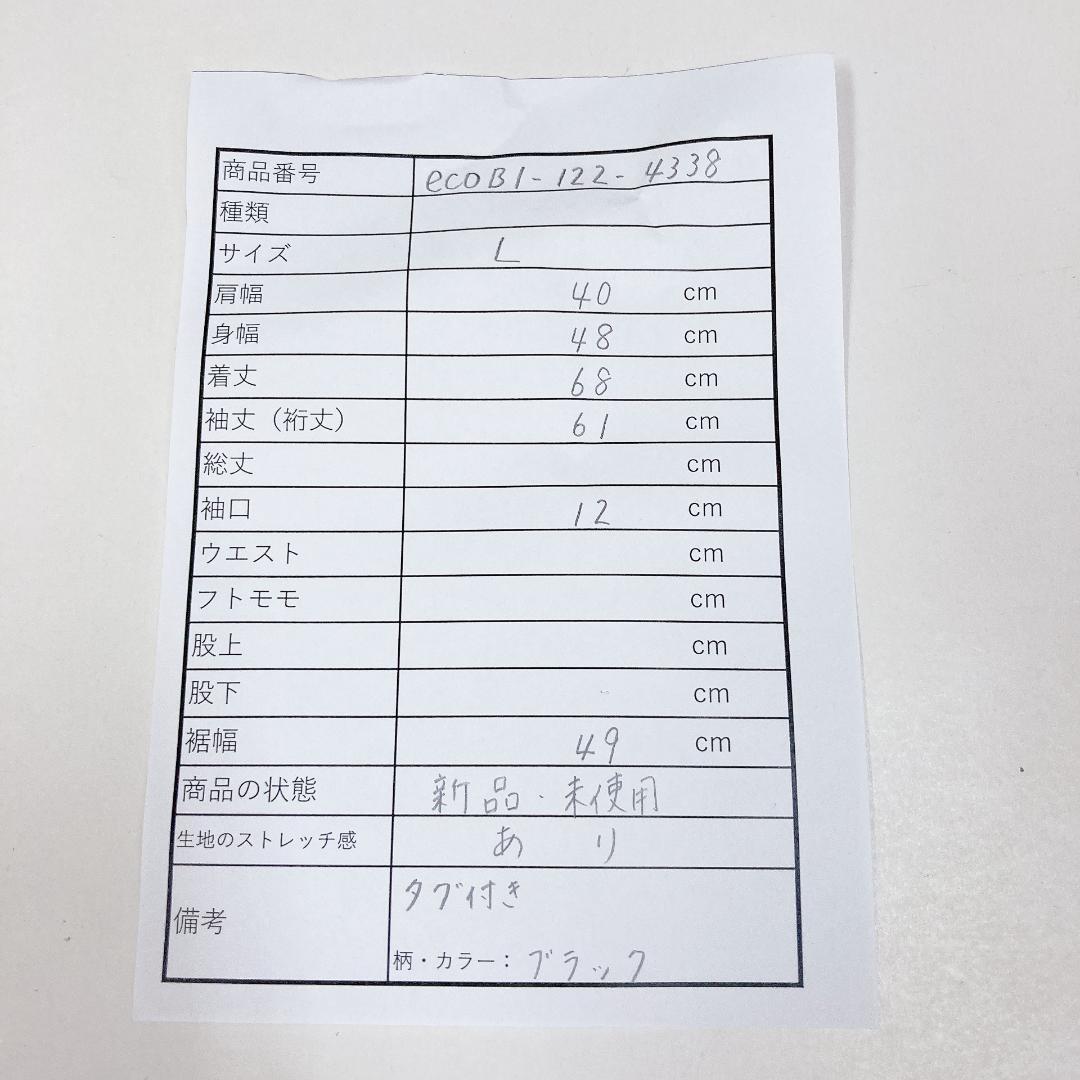 商品番号 ecoB1-122-4338
種類
サイズ L
肩幅 40 cm
身幅 48 cm
着丈 68 cm
袖丈（裄丈） 61 cm
総丈 cm
袖口 12 cm
ウエスト cm
フトモモ cm
股上 cm
股下 cm
裾幅 49 cm
商品の状態 新品・未使用
生地のストレッチ感 あり
備考 タグ付き
柄・カラー：ブラック